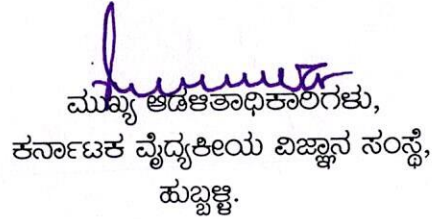 ಮುಖ್ಯ ಆಡಳಿತಾಧಿಕಾರಿಗಳು,
ಕರ್ನಾಟಕ ವೈದ್ಯಕೀಯ ವಿಜ್ಞಾನ ಸಂಸ್ಥೆ,
ಹುಬ್ಬಳ್ಳಿ.